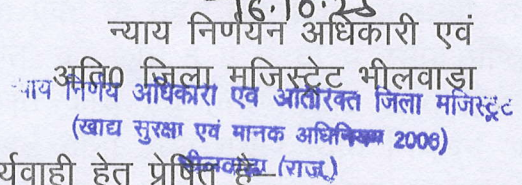 16.10.25
न्याय निर्णयन अधिकारी एवं
अति0 जिला मजिस्ट्रेट भीलवाडा
न्याय निर्णय अधिकारी एवं अतिरिक्त जिला मजिस्ट्रेट
(खाद्य सुरक्षा एवं मानक अधिनियम 2006)
भीलवाड़ा (राज.)
र्यवाही हेतु प्रेषित है–